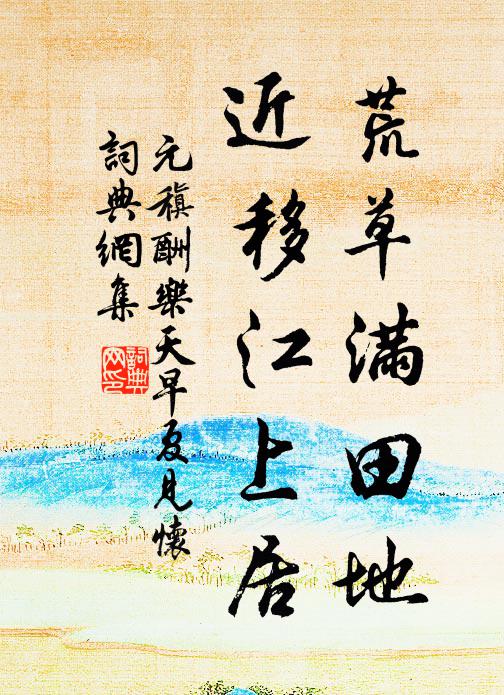 荒草滿田地
近移江上居
元稹酬樂天早夏見懷
詞典網集
詞典
网印